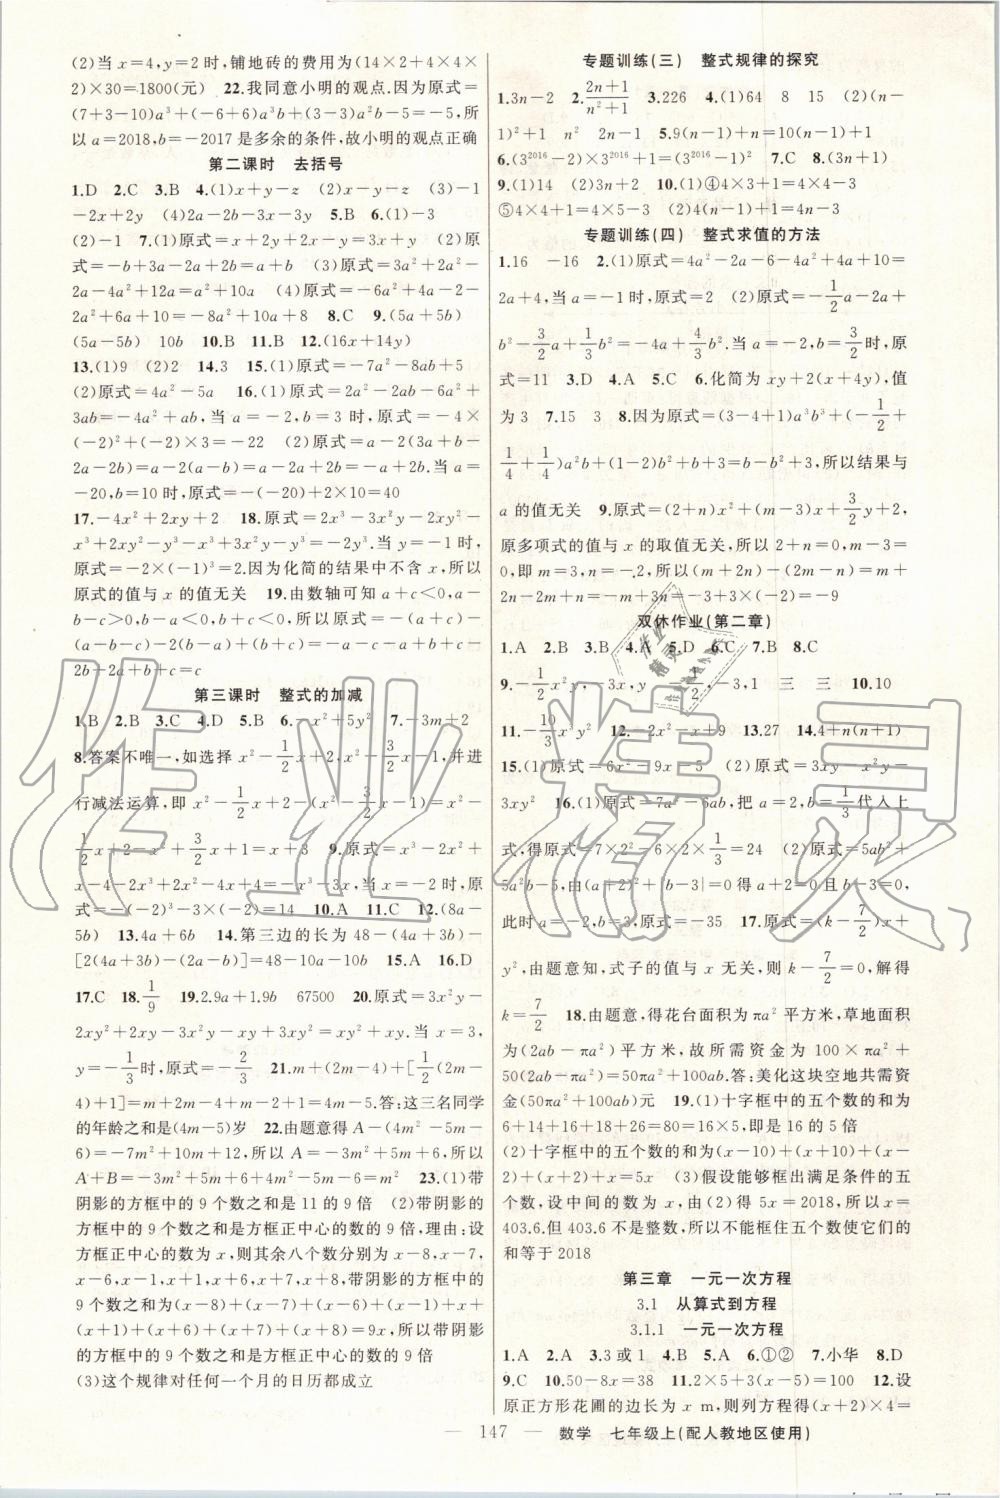 (2)当 x=4,y=2 时,铺地砖的费用为(14×2+4×4×
2)×30=1800(元) 22.我同意小明的观点.因为原式=
(7+3-10)a³+(-6+6)a³b+(3-3)a²b-5=-5,所
以 a=2018,b=-2017 是多余的条件,故小明的观点正确
第二课时 去括号
1.D 2.C 3.B 4.(1)x+y-z (2)x-y-z (3)-1
-2x+2y (4)2a-2b-3x-3y 5.B 6.(1)-3
(2)-1 7.(1)原式=x+2y+2x-y=3x+y (2)原
式=-b+3a-2a+2b=a+b (3)原式=3a²+2a²-
2a-4a²+12a=a²+10a (4)原式=-6a²+4a-2-
2a²+6a+10=-8a²+10a+8 8.C 9.(5a+5b)
(5a-5b) 10b 10.B 11.B 12.(16x+14y)
13.(1)9 (2)2 14.3 15.(1)原式=-7a²-8ab+5
(2)原式=4a²-5a 16.(1)原式=2a²-2ab-6a²+
3ab=-4a²+ab,当 a=-2,b=3 时,原式=-4×
(-2)²+(-2)×3=-22 (2)原式=a-2(3a+b-
2a-2b)=a-2(a-b)=a-2a+2b=-a+2b.当 a=
-20,b=10 时,原式=-(-20)+2×10=40
17.-4x²+2xy+2 18.原式=2x³-3x²y-2xy²-
x³+2xy²-y³-x³+3x²y-y³=-2y³.当 y=-1 时,
原式=-2×(-1)³=2.因为化简的结果中不含 x,所以
原式的值与 x 的值无关 19.由数轴可知 a+c<0,a-
b-c>0,b-a<0,b+c<0,所以原式=-(a+c)-
(a-b-c)-2(b-a)+(b+c)=-a-c-a+b+c-
2b+2a+b+c=c
第三课时 整式的加减
1.B 2.B 3.C 4.D 5.B 6.-x²+5y² 7.-3m+2
8.答案不唯一,如选择 x²-1/2x+2,x²-3/2x-1,并进
行减法运算,即 x²-1/2x+2-(x²-3/2x-1)=x²-
1/2x+2-x²+3/2x+1=x+3 9.原式=x³-2x²+
x-4-2x³+2x²-4x+4=-x³-3x,当 x=-2 时,原
式=-(-2)³-3×(-2)=14 10.A 11.C 12.(8a-
5b) 13.4a+6b 14.第三边的长为 48-(4a+3b)-
[2(4a+3b)-(2a-b)]=48-10a-10b 15.A 16.D
17.C 18.1/9 19.2.9a+1.9b 67500 20.原式=3x²y-
2xy²+2xy-3x²y-xy+3xy²=xy²+xy.当 x=3,
y=-1/3时,原式=-2/3 21.m+(2m-4)+[1/2(2m-
4)+1]=m+2m-4+m-2+1=4m-5.答:这三名同学
的年龄之和是(4m-5)岁 22.由题意得 A-(4m²-5m-6)
=-7m²+10m+12,所以 A=-3m²+5m+6,所以
A+B=-3m²+5m+6+4m²-5m-6=m² 23.(1)带
阴影的方框中的 9 个数之和是 11 的 9 倍 (2)带阴影的
方框中的 9 个数之和是方框正中心的数的 9 倍.理由:设
方框正中心的数为 x,则其余八个数分别为 x-8,x-7,
x-6,x-1,x+1,x+6,x+7,x+8,带阴影的方框中的
9 个数之和为(x-8)+(x-7)+(x-6)+(x-1)+x+
(x+1)+(x+6)+(x+7)+(x+8)=9x,所以带阴影
的方框中的 9 个数之和是方框正中心的数的 9 倍
(3)这个规律对任何一个月的日历都成立
专题训练(三) 整式规律的探究
1.3n-2 2.2n+1/n²+1 3.226 4.(1)64 8 15 (2)(n-
1)²+1 n² 2n-1 5.9(n-1)+n=10(n-1)+1
6.(3²⁰¹⁶-2)×3²⁰¹⁶+1=(3²⁰¹⁶-1)² 7.C 8.(3n+1)
9.(1)14 (2)13n+6 10.(1)④4×3+1=4×4-3
⑤4×4+1=4×5-3 (2)4(n-1)+1=4n-3
专题训练(四) 整式求值的方法
1.16 -16 2.(1)原式=4a²-2a-6-4a²+4a+10=
2a+4,当 a=-1 时,原式=2 (2)原式=-1/2a-2a+
b²-3/2a+1/3b²=-4a+4/3b².当 a=-2,b=3/2时,原
式=11 3.D 4.A 5.C 6.化简为 xy+2(x+4y),值
为 3 7.15 3 8.因为原式=(3-4+1)a³b³+(-1/2+
1/4+1/4)a²b+(1-2)b²+b+3=b-b²+3,所以结果与
a 的值无关 9.原式=(2+n)x²+(m-3)x+3/2y+2,
原多项式的值与 x 的取值无关,所以 2+n=0,m-3=
0,即 m=3,n=-2,所以(m+2n)-(2m-n)=m+
2n-2m+n=-m+3n=-3+3×(-2)=-9
双休作业(第二章)
1.A 2.B 3.B 4.A 5.D 6.C 7.B 8.C
9.-1/2x²y,-3x,y 1/2,-3,1 三 三 10.10
11.-10/3x²y² 12.-2x²-x+9 13.27 14.4+n(n+1)
15.(1)原式=6x²-9x-5 (2)原式=3xy-x²y-
3xy² 16.(1)原式=7a²-6ab,把 a=2,b=1/3代入上
式,得原式=7×2²-6×2×1/3=24 (2)原式=5ab²+
5a²b-5,由(a+2)²+|b-3|=0得 a+2=0 且 b-3=0,
此时 a=-2,b=3,原式=-35 17.原式=(k-7/2)x+
y²,由题意知,式子的值与 x 无关,则 k-7/2=0,解得
k=7/2 18.由题意,得花台面积为 πa²平方米,草地面积
为(2ab-πa²)平方米,故所需资金为 100×πa²+
50(2ab-πa²)=50πa²+100ab.答:美化这块空地共需资
金(50πa²+100ab)元 19.(1)十字框中的五个数的和为
6+14+16+18+26=80=16×5,即是 16 的 5 倍
(2)十字框中的五个数的和为(x-10)+(x+10)+(x-
2)+(x+2)+x=5x (3)假设能够框出满足条件的五
个数,设中间的数为 x,由(2)得 5x=2018,所以 x=
403.6.但 403.6 不是整数,所以不能框住五个数使它们的
和等于 2018
第三章 一元一次方程
3.1 从算式到方程
3.1.1 一元一次方程
1.A 2.A 3.3 或 1 4.B 5.A 6.①② 7.小华 8.D
9.C 10.50-8x=38 11.2×5+3(x-5)=100 12.设
原正方形花圃的边长为 x m,则列方程(x+2)×4=
— 147 — 数学 七年级上(配人教地区使用)
作业精灵